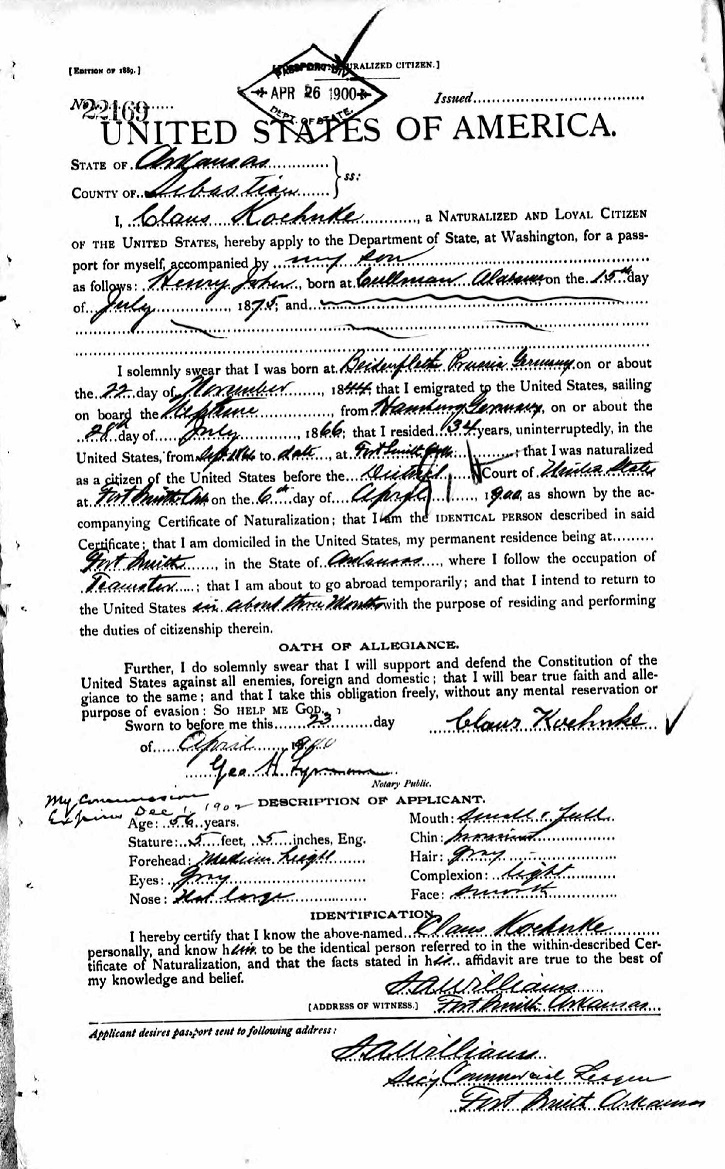 [EDITION OF 1889.] NATURALIZED CITIZEN.]
PASSPORT DIV.
APR 26 1900
DEPT. OF STATE.
No. 22169 Issued
UNITED STATES OF AMERICA.
STATE OF Arkansas
COUNTY OF Sebastian } ss:
I, Claus Koehnke, a NATURALIZED AND LOYAL CITIZEN
OF THE UNITED STATES, hereby apply to the Department of State, at Washington, for a pass-
port for myself, accompanied by my son
as follows: Henry John, born at Cullman Alabama on the 15th day
of July, 1875; and
I solemnly swear that I was born at Beidenfleth Prussia Germany on or about
the 22 day of November, 1844; that I emigrated to the United States, sailing
on board the Neptune, from Hamburg Germany, on or about the
28th day of July, 1866; that I resided 34 years, uninterruptedly, in the
United States, from Sept 1866 to date, at Fort Smith Ark; that I was naturalized
as a citizen of the United States before the District Court of United States
at Fort Smith Ark on the 6th day of April, 1900, as shown by the ac-
companying Certificate of Naturalization; that I am the IDENTICAL PERSON described in said
Certificate; that I am domiciled in the United States, my permanent residence being at
Fort Smith, in the State of Arkansas, where I follow the occupation of
Teamster; that I am about to go abroad temporarily; and that I intend to return to
the United States in about three Months with the purpose of residing and performing
the duties of citizenship therein.
OATH OF ALLEGIANCE.
Further, I do solemnly swear that I will support and defend the Constitution of the
United States against all enemies, foreign and domestic; that I will bear true faith and alle-
giance to the same; and that I take this obligation freely, without any mental reservation or
purpose of evasion: SO HELP ME GOD.
Sworn to before me this 23 day Claus Koehnke
of April 1900
Geo H Lyman
Notary Public.
My Commission
Expires Dec 1, 1902 DESCRIPTION OF APPLICANT.
Age: 56 years. Mouth: Small & Full
Stature: 5 feet, 5 inches, Eng. Chin:
Forehead: Medium height Hair: gray
Eyes: Gray Complexion: light
Nose: Not large Face: smooth
IDENTIFICATION.
I hereby certify that I know the above-named Claus Koehnke
personally, and know him to be the identical person referred to in the within-described Cer-
tificate of Naturalization, and that the facts stated in his affidavit are true to the best of
my knowledge and belief.
J.A. Williams
[ADDRESS OF WITNESS.] Fort Smith Arkansas
Applicant desires passport sent to following address:
J.A. Williams
Sec'y Commercial League
Fort Smith Arkansas